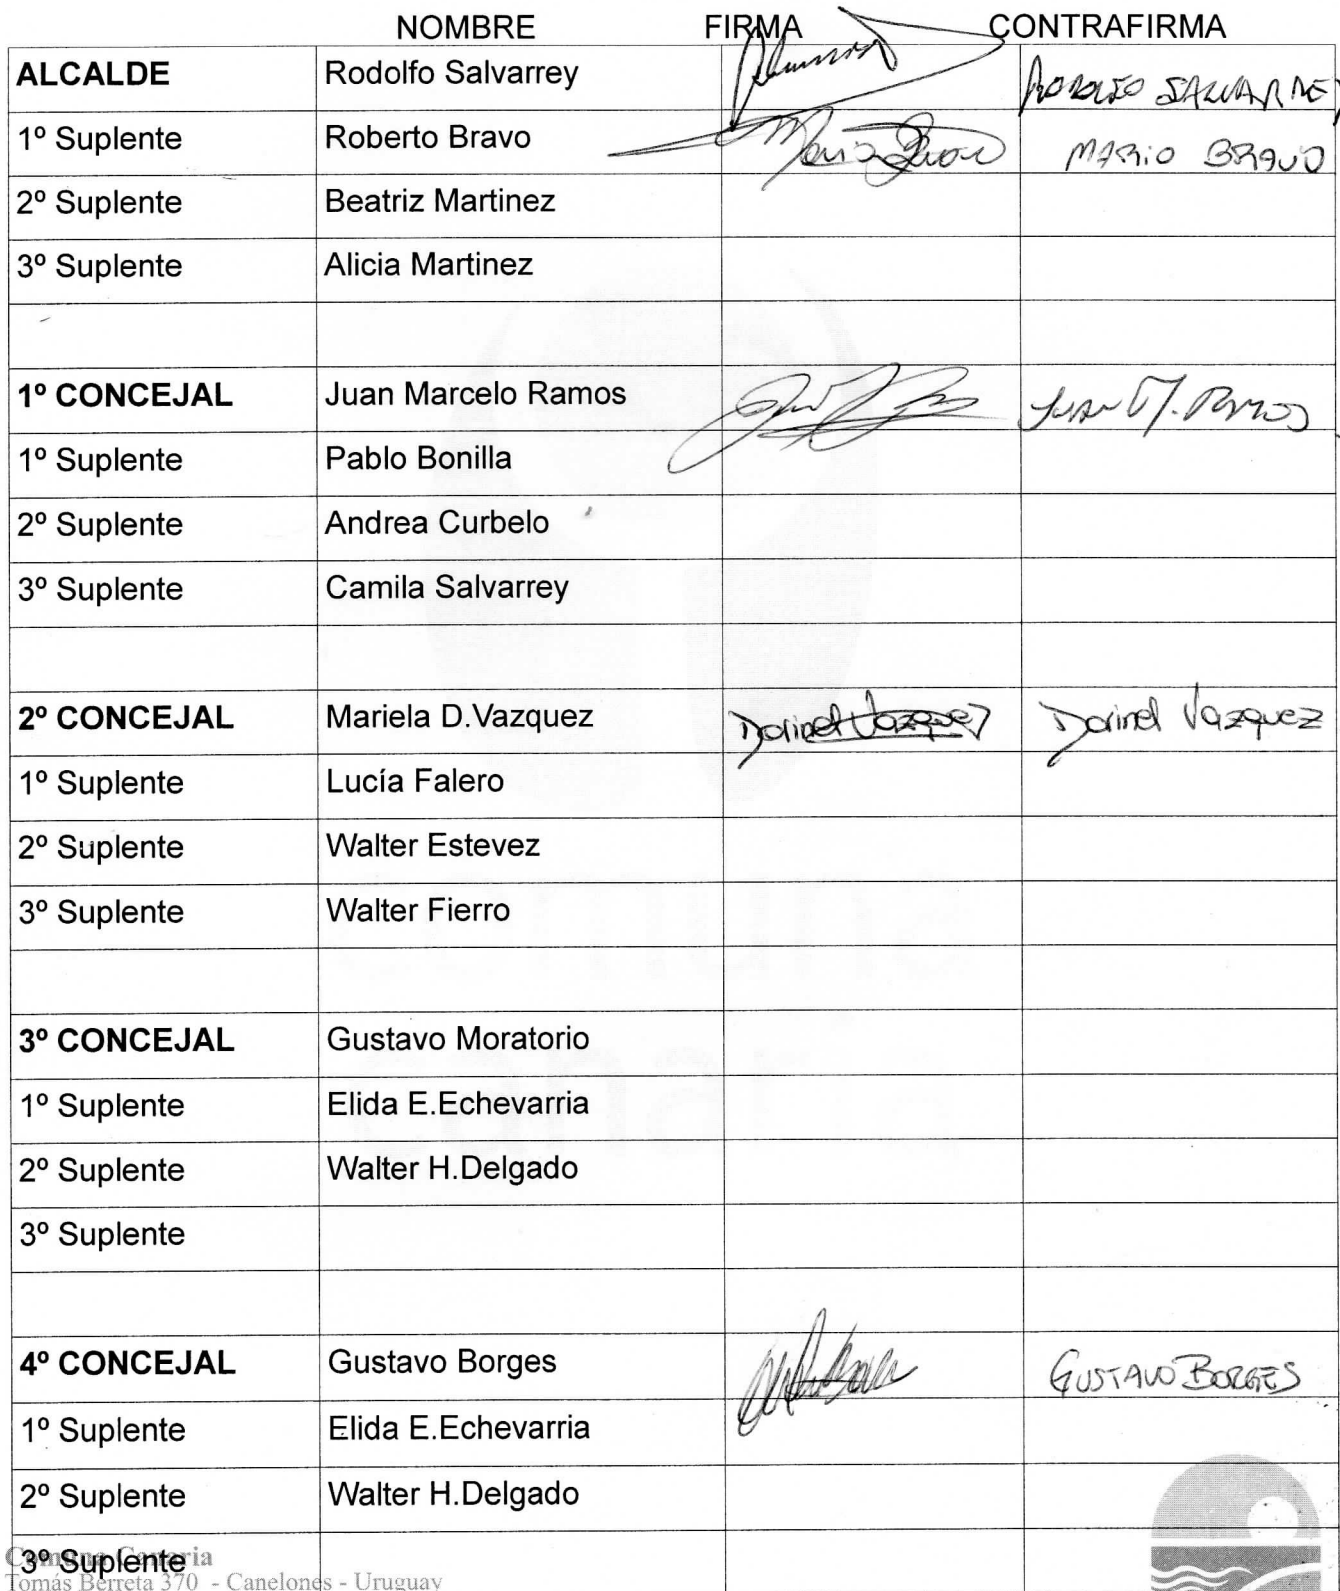 NOMBRE FIRMA CONTRAFIRMA
ALCALDE Rodolfo Salvarrey RODOLFO SALVARREY
1º Suplente Roberto Bravo Mario Bravo MARIO BRAVO
2º Suplente Beatriz Martinez
3º Suplente Alicia Martinez
1º CONCEJAL Juan Marcelo Ramos JUAN M. RAMOS
1º Suplente Pablo Bonilla
2º Suplente Andrea Curbelo
3º Suplente Camila Salvarrey
2º CONCEJAL Mariela D.Vazquez Dorinel Vazquez Dorinel Vazquez
1º Suplente Lucía Falero
2º Suplente Walter Estevez
3º Suplente Walter Fierro
3º CONCEJAL Gustavo Moratorio
1º Suplente Elida E.Echevarria
2º Suplente Walter H.Delgado
3º Suplente
4º CONCEJAL Gustavo Borges GUSTAVO BORGES
1º Suplente Elida E.Echevarria
2º Suplente Walter H.Delgado
3º Suplente
Comuna Canaria
Tomás Berreta 370 - Canelones - Uruguay